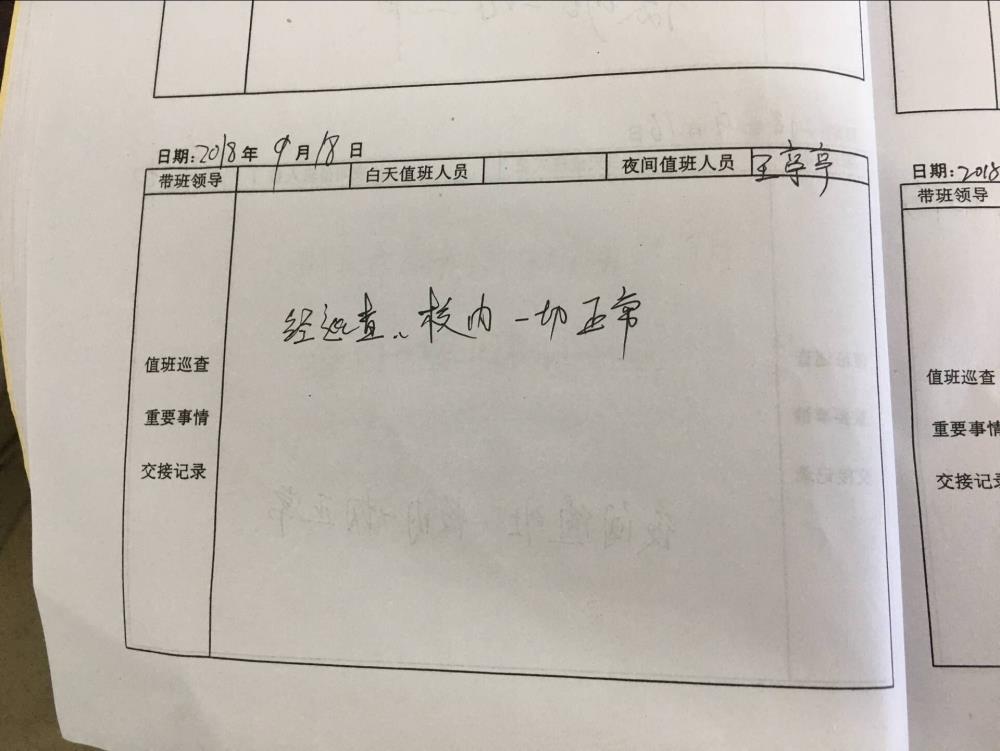 日期:2018年 9月18日
带班领导 白天值班人员 夜间值班人员
经巡查、校内一切正常
值班巡查
重要事情
交接记录
日期:2018
带班领导
值班巡查
重要事情
交接记录